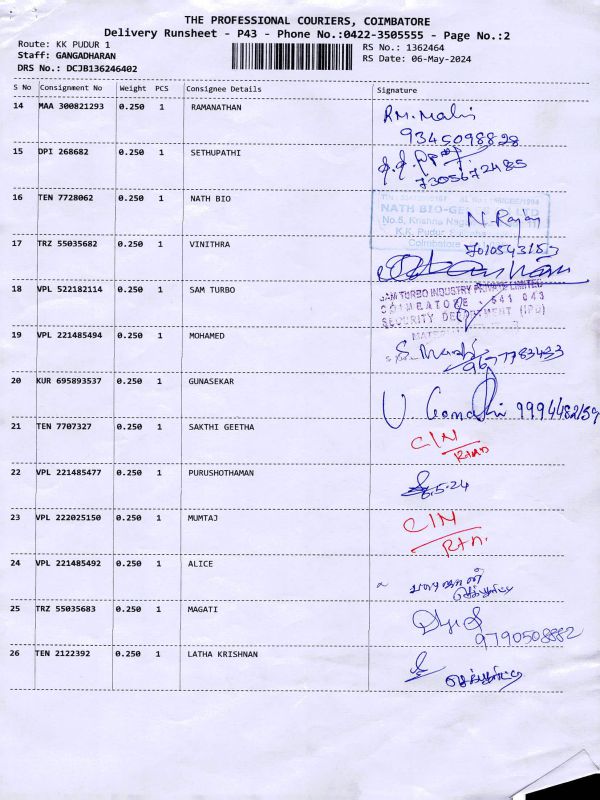 THE PROFESSIONAL COURIERS, COIMBATORE
Delivery Runsheet - P43 - Phone No.:0422-3505555 - Page No.:2
Route: KK PUDUR 1 RS No.: 1362464
Staff: GANGADHARAN RS Date: 06-May-2024
DRS No.: DCJB136246402
S No Consignment No Weight PCS Consignee Details Signature
14 MAA 300821293 0.250 1 RAMANATHAN RM. Malai
9345098828
15 DPI 268682 0.250 1 SETHUPATHI
7305672485
16 TEN 7728062 0.250 1 NATH BIO N. Rajay
NATH BIO-GE
No.5, Krishna Nag
K.K. Pudur,
Coimbatore
17 TRZ 55035682 0.250 1 VINITHRA
18 VPL 522182114 0.250 1 SAM TURBO
SAM TURBO INDUSTRY PRIVATE LIMITED
COIMBATORE - 641 043
SECURITY DEPARTMENT
19 VPL 221485494 0.250 1 MOHAMED
9677783433
20 KUR 695893537 0.250 1 GUNASEKAR
U. Gomathi
21 TEN 7707327 0.250 1 SAKTHI GEETHA C/N
22 VPL 221485477 0.250 1 PURUSHOTHAMAN
6.5.24
23 VPL 222025150 0.250 1 MUMTAJ C/N
Rtn.
24 VPL 221485492 0.250 1 ALICE
25 TRZ 55035683 0.250 1 MAGATI
9790508882
26 TEN 2122392 0.250 1 LATHA KRISHNAN